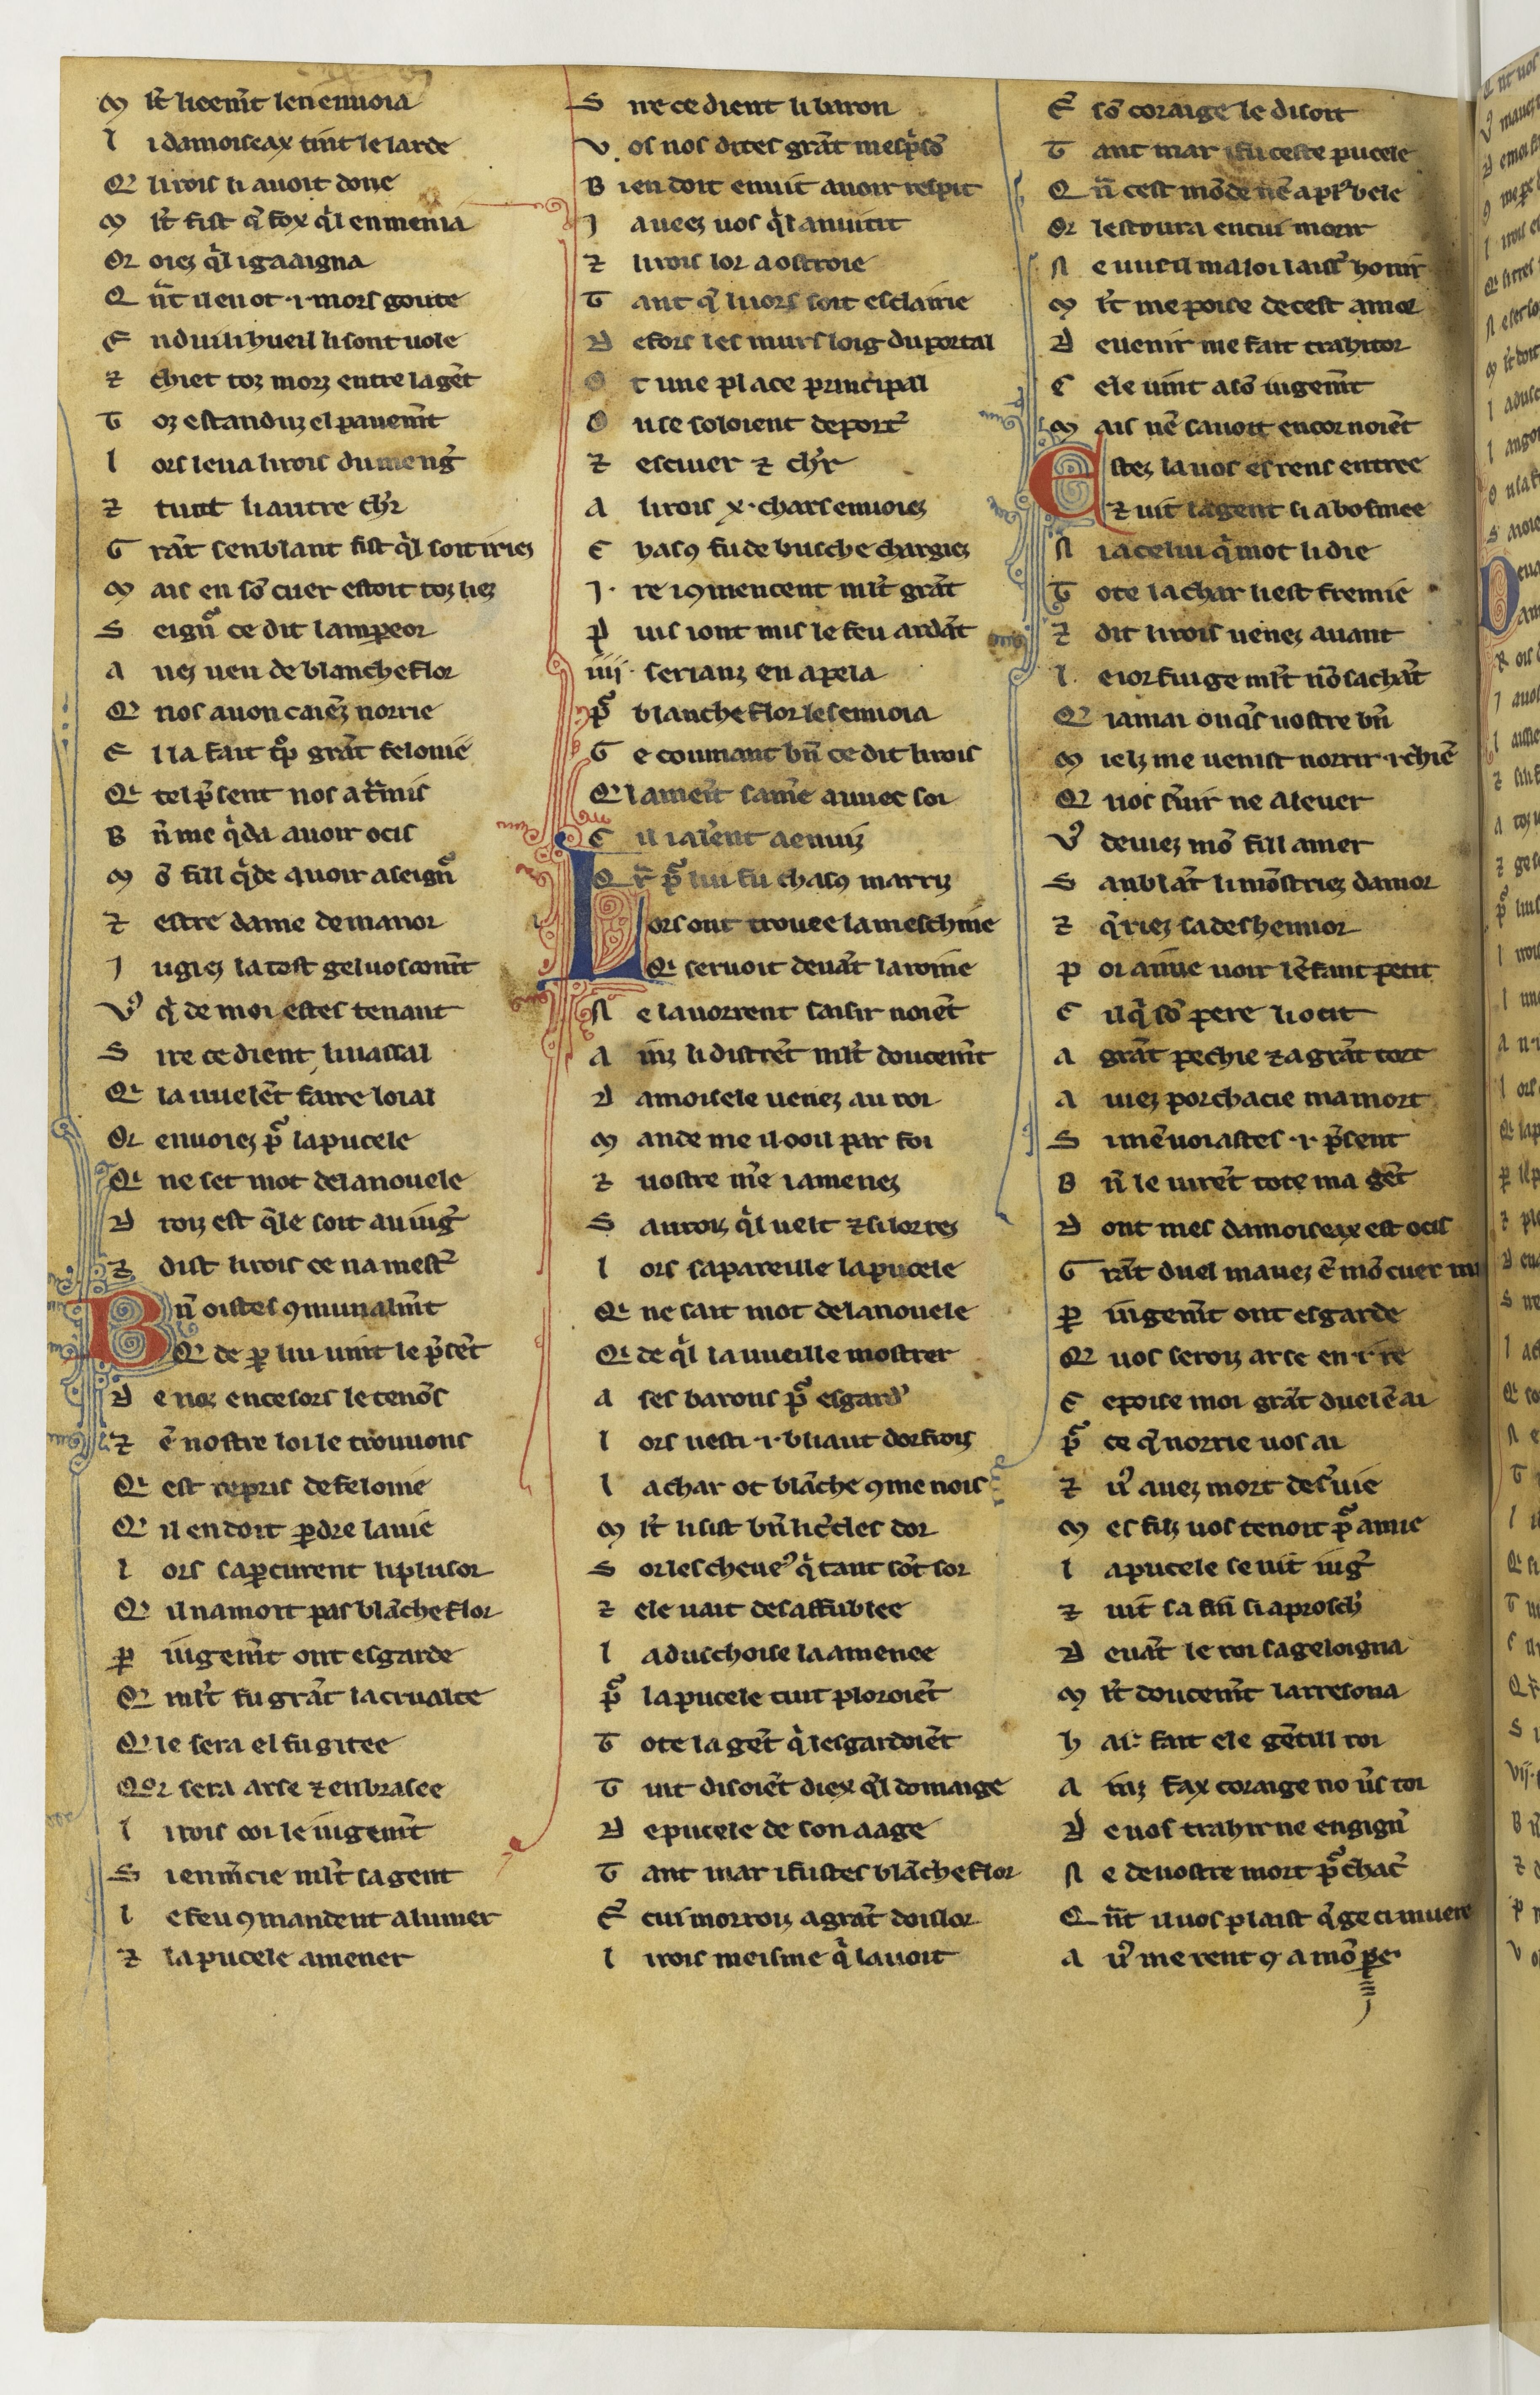 M lt lieemt len ennoia
L i damoiseax tint le larde
Q li rois li auoit done
M lt fist q̄ fox q̇l en menia
Or oiez q̇l i gaaigna
Q n̄t il en ot ·i· mors goute
E ndui li hueil li sont uole
⁊ chiet toz morz entre la gēt
T oz estanduz el pauemt
L ors leua li rois du meng̅
⁊ tuit li autre chr̅
G rāt senblant fist q̇l soit iriez
M ais en sō cuer estoit toz liez
S eign̄ ce dit lampeor
A uez ueu de blancheflor
Q nos auon caiēz norrie
E l la fait tp̄ grāt felonie
Q tel p̄sent nos a tr̄mis
B n̄ me q̇da auoir ocis
M ō fill q̇de auoir a seign̄
⁊ estre dame de manor
J ugiez la tost gel uos comt
V' q̇ de moi estes tenant
S ire ce dient li uassal
Q la uuelēt faire loial
Or enuoiez p̄ la pucele
Q ne set mot de la nouele
D roiz est q̄le soit au iug̅
⁊ dist li rois ce na mest̄
B n̄ oistes 9munalmt
Q de p lui uint le p̄sēt
D e noz encesors le tenōs
⁊ ē nostre loi le trouuons
Q est repris de felonie
Q il en doit pdre la uie
L ors saparcurent li plusor
Q il namoit pas blācheflor
P iugemt ont esgarde
Q mlt fu grāt la crualte
Q le sera el fu gitee
Q or sera arse ⁊ enbrasee
L i rois ooi le iugemt
S i en mcie mlt sa gent
L e feu 9mandent alumer
⁊ la pucele amener
S ire ce dient li baron
V os nos dites grāt mesp̄sō
B ien doit enuit auoir respit
J a ueez uos q̇l anuitit
⁊ li rois lor a ostroie
T ant q̄ li iors soit esclairie
D efors les murs loig du portal
O t une place principal
O u se soloient deport̄
⁊ escuier ⁊ chr̅
A li rois x· chars enuoiez
C hac9 fu de busche chargiez
J· re i 9mencent mlt grāt
P uis i ont mis le feu ardāt
iiij· serianz en apela
P̄ blancheflor les enuoia
G e coumant bn̄ ce dit li rois
Q lament̄ sa me auuec soi
C il i alent a enuiz
Q r̄ p̄ lui fu chac9 marriz
L ors ont trouee la meschine
Q seruoit deuāt la roine
N e la uorrent saisir noiēt
A inz li distrēt mlt doucemt
D amoisele uenez au roi
M ande me il ooil par foi
⁊ uostre me i amenez
S auroiz q̇l uelt ⁊ si lorrez
L ors sapareille la pucele
Q ne sait mot de la nouele
Q de q̇l la uueille mostrer
A ses barons p̄ esgard'
L ors uesti ·i· bliaut dorfrois
L a char ot blāche 9me nois
M lt li sist bn̄ li cēcles dor
S or les cheue' q̇ tant sōt sor
⁊ ele uait desaffublee
L a duschoise la amenee
P̄ la pucele tuit ploroiēt
T ote la gēt q̇ lesgardoiēt
T uit disoiēt diex q̄l domaige
D e pucele de son aage
T ant mar i fustes blācheflor
E' cui morroiz a grāt dolor
L i rois meisme q̇ la uoit
E' sō coraige le disoit
T ant mar i fu ceste pucele
Q n̄ cest mōde nē a pl' bele
Or lestoura encui morir
N e uueil ma loi laiss̄ honir
M lt me poise de cest amor
D euenir me fait trahitor
C ele uint a sō iugemt
M ais nē sauoit encor noiēt
E stez la uos es rens entree
⁊ uit la gent si abosmee
N i a celui q̇ mot li die
T ote la char li est fremie
⁊ dit li rois uenez auant
L e ior fui ge mlt nō sachāt
Q iamai onq̄s uostre bn̄
M ielz me uenist norrir ·i· chiē
Q uos sūir ne aleuer
V' deuiez mō fill amer
S anblāt li mōstriez damor
⁊ q̄riez sa deshennor
P or aime uoir lēfant petit
C il q̇ sō pere li ocit
A grāt pechie ⁊ a grāt tort
A uiez porchacie ma mort
S i mēuoiastes ·i· p̄sent
B n̄ le uirēt tote ma gēt
D ont mes damoiseax est ocis
G rāt duel mauez ē mō cuer mi
P iugemt ont esgarde
Q uos seroiz arse en ·i· re
C e poise moi grāt duel ē ai
P̄ ce q̄ norrie uos ai
⁊ u' auez mort des̄uie
M es filz uos tenoit p̄ amie
L a pucele se uit iug̅
⁊ uit sa fin si aprosch'
D euāt le roi sageloigna
M lt doucemt larresona
H aī fait ele gētill roi
A inz fax coraige no ūs toi
D e uos trahir ne engign̄
N e de uostre mort p̄chac̄
Q n̄t il uos plaist q̄ ge ci muere
A u' me rent 9 a mō pe·